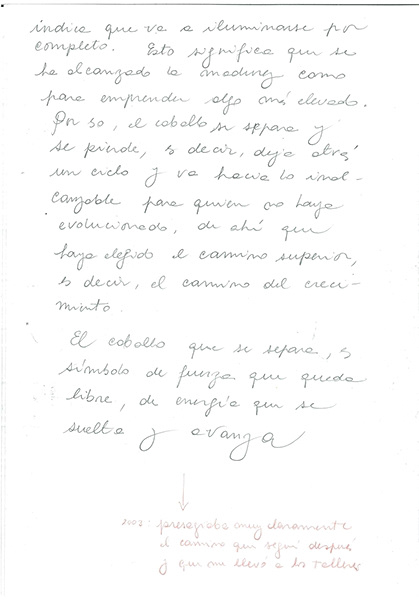 indica que va a iluminarse por
completo. Esto significa que se
ha alcanzado la madurez como
para emprender algo más elevado.
Por so, el caballo se separa y
se pierde, es decir, deja atrás
un ciclo y va hacia lo inal-
canzable para quien no haya
evolucionado, de ahí que
haya elegido el camino superior,
es decir, el camino del creci-
miento.
El caballo que se separa, es
símbolo de fuerza que queda
libre, de energía que se
suelta y avanza
2002: presagiaba muy claramente
el camino que seguí después
y que me llevó a los talleres